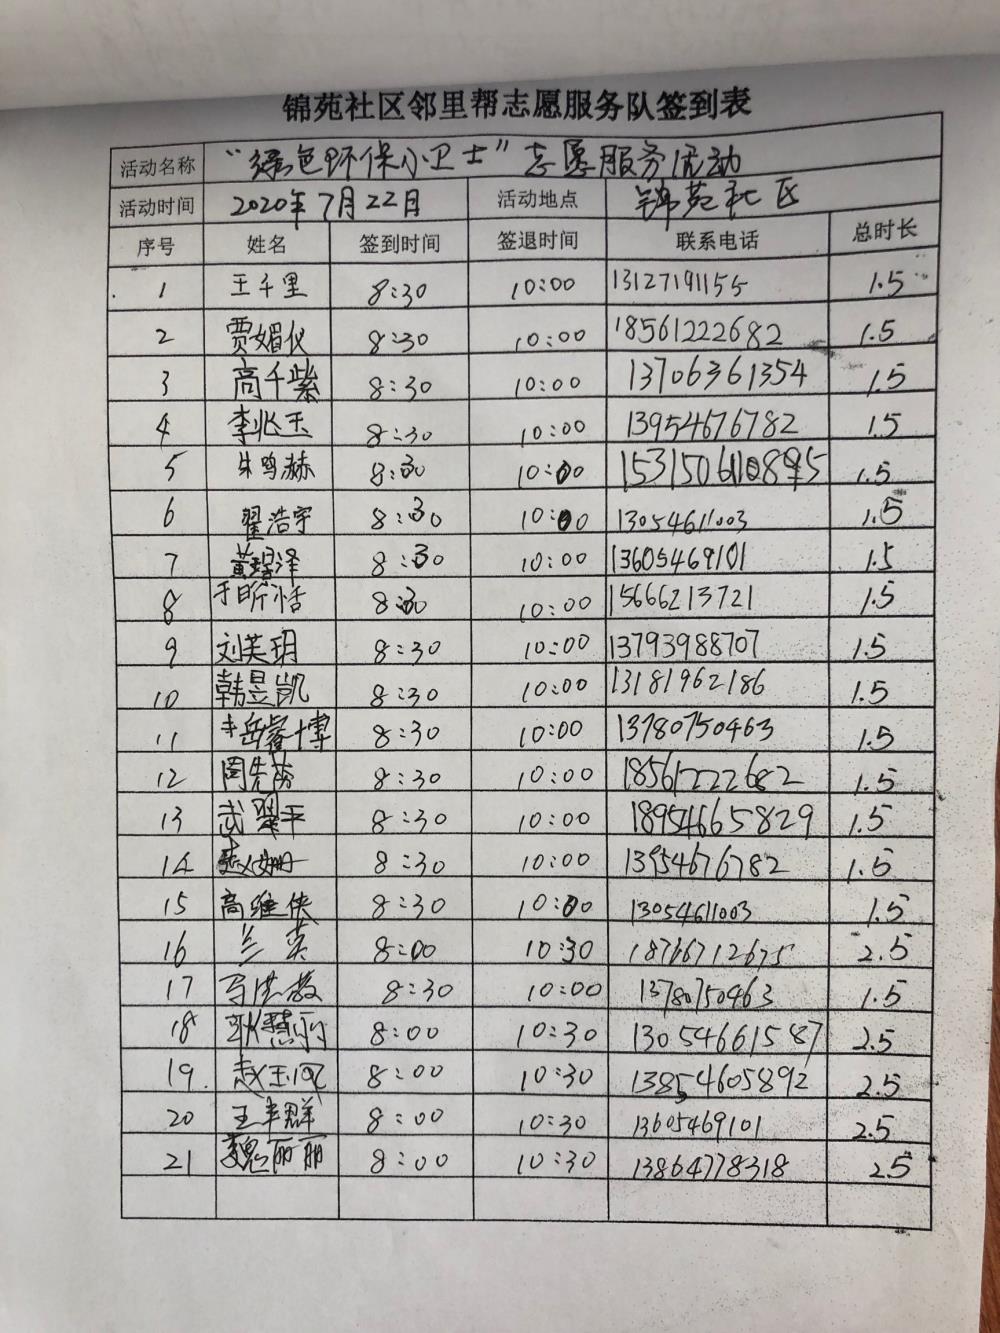 锦苑社区邻里帮志愿服务队签到表
活动名称 “绿色环保小卫士”志愿服务活动
活动时间 2020年7月22日 活动地点 锦苑社区
序号 姓名 签到时间 签退时间 联系电话 总时长
1 王千里 8:30 10:00 13127191155 1.5
2 贾媚仪 8:30 10:00 18561222682 1.5
3 高千紫 8:30 10:00 13706361354 1.5
4 李兆玉 8:30 10:00 13954676782 1.5
5 朱鸣赫 8:30 10:00 1.5
6 翟浩宇 8:30 10:00 13054611003 1.5
7 黄璟泽 8:30 10:00 13605469101 1.5
8 于昕恬 8:30 10:00 15666213721 1.5
9 刘芙玥 8:30 10:00 13793988707 1.5
10 韩昱凯 8:30 10:00 13181962186 1.5
11 8:30 10:00 13780750463 1.5
12 周先芬 8:30 10:00 18561222682 1.5
13 武翠平 8:30 10:00 18954665829 1.5
14 赵姗 8:30 10:00 13954676782 1.5
15 高维侠 8:30 10:00 13054611003 1.5
16 兰英 8:00 10:30 18766712675 2.5
17 8:30 10:00 13780750463 1.5
18 耿慧丽 8:00 10:30 13054661587 2.5
19 赵玉凤 8:00 10:30 13854605892 2.5
20 王丰群 8:00 10:30 13605469101 2.5
21 魏丽丽 8:00 10:30 13864778318 2.5